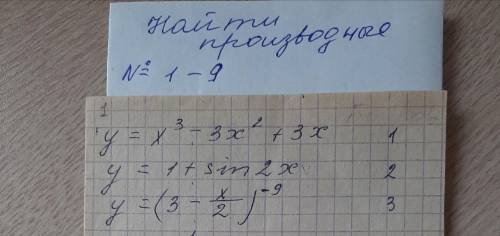 Найти
производные
№ 1 - 9
1
y = x³ - 3x² + 3x 1
y = 1 + sin 2x 2
y = (3 - x/2)⁻⁹ 3